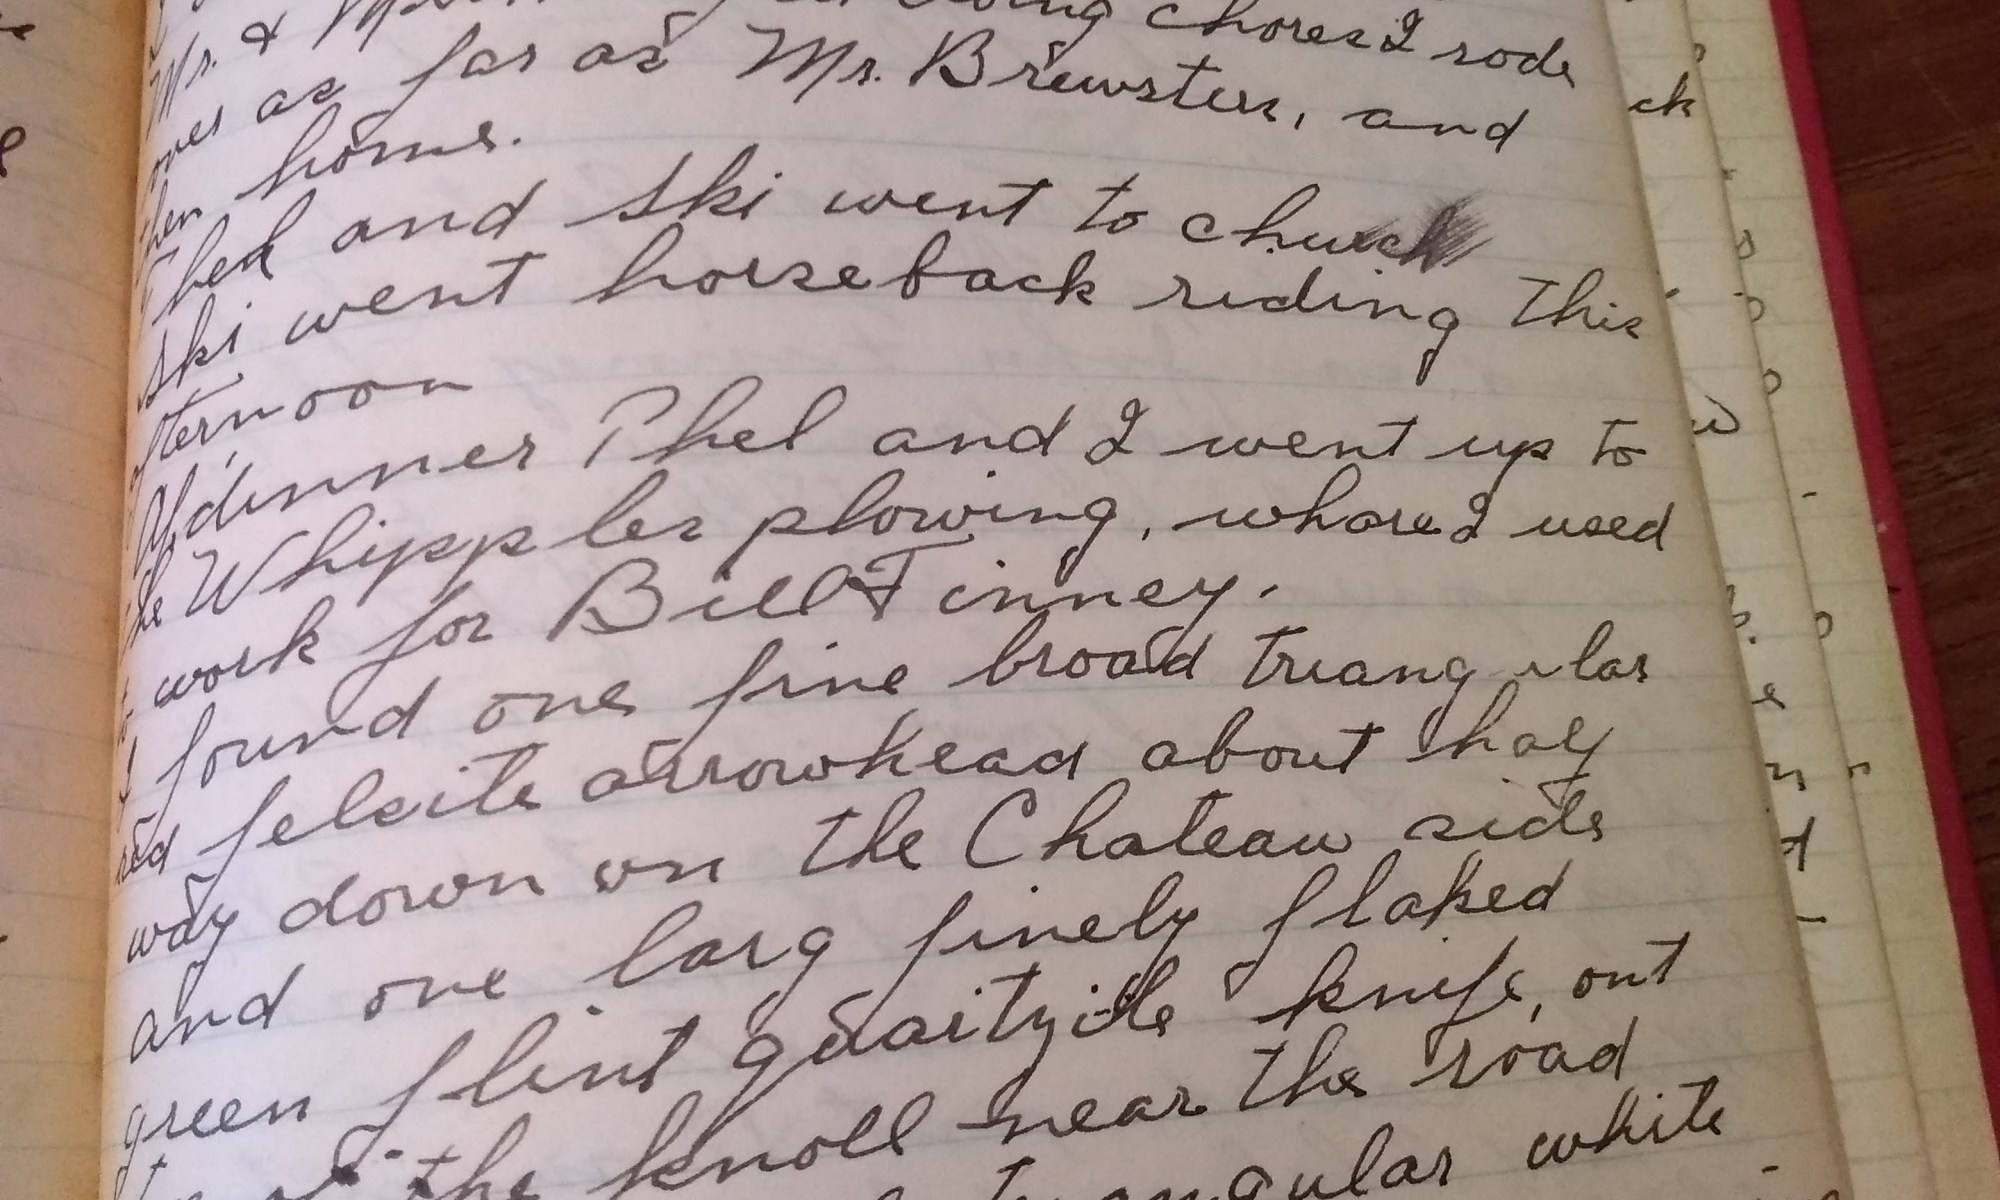 Mr. & doing chores I rode
over as far as Mr. Brewsters, and
then home.
Phel and Ski went to church
Ski went horseback riding this
afternoon
Af, dinner Phel and I went up to
the Whipples plowing, whare I used
to work for Bill Finney.
I found one fine broad triangular
red felsite arrowhead about half
way down on the Chateau side
and one larg finely flaked
green flint quartzite knife, out
the knoll near the road
triangular white